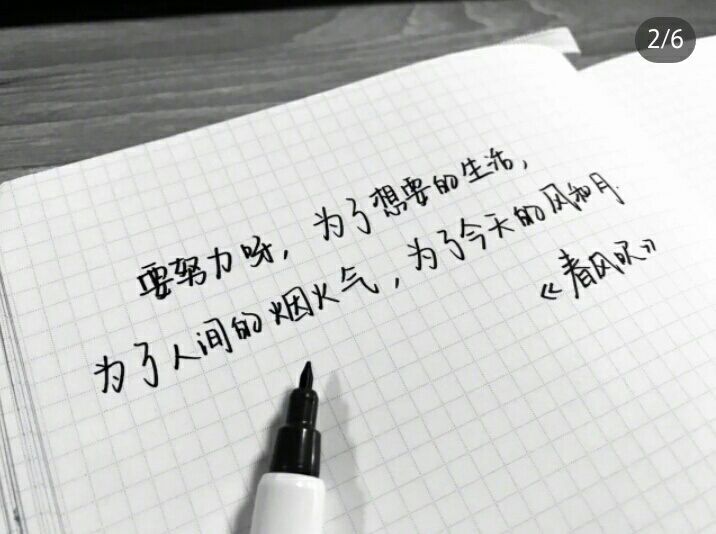 2/6
要努力呀，为了想要的生活，
为了人间的烟火气，为了今天的风和月.
《春风吹》